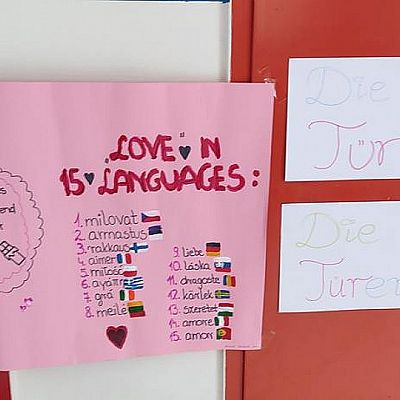 "LOVE" IN
15 LANGUAGES:
1. milovat
2. armastus
3. rakkaus
4. aimer
5. miłość
6. αγάπη
7. grá
8. meilė
9. liebe
10. láska
11. dragoste
12. kärlek
13. szeretet
14. amore
15. amor
Die
Tür
Die
Türen